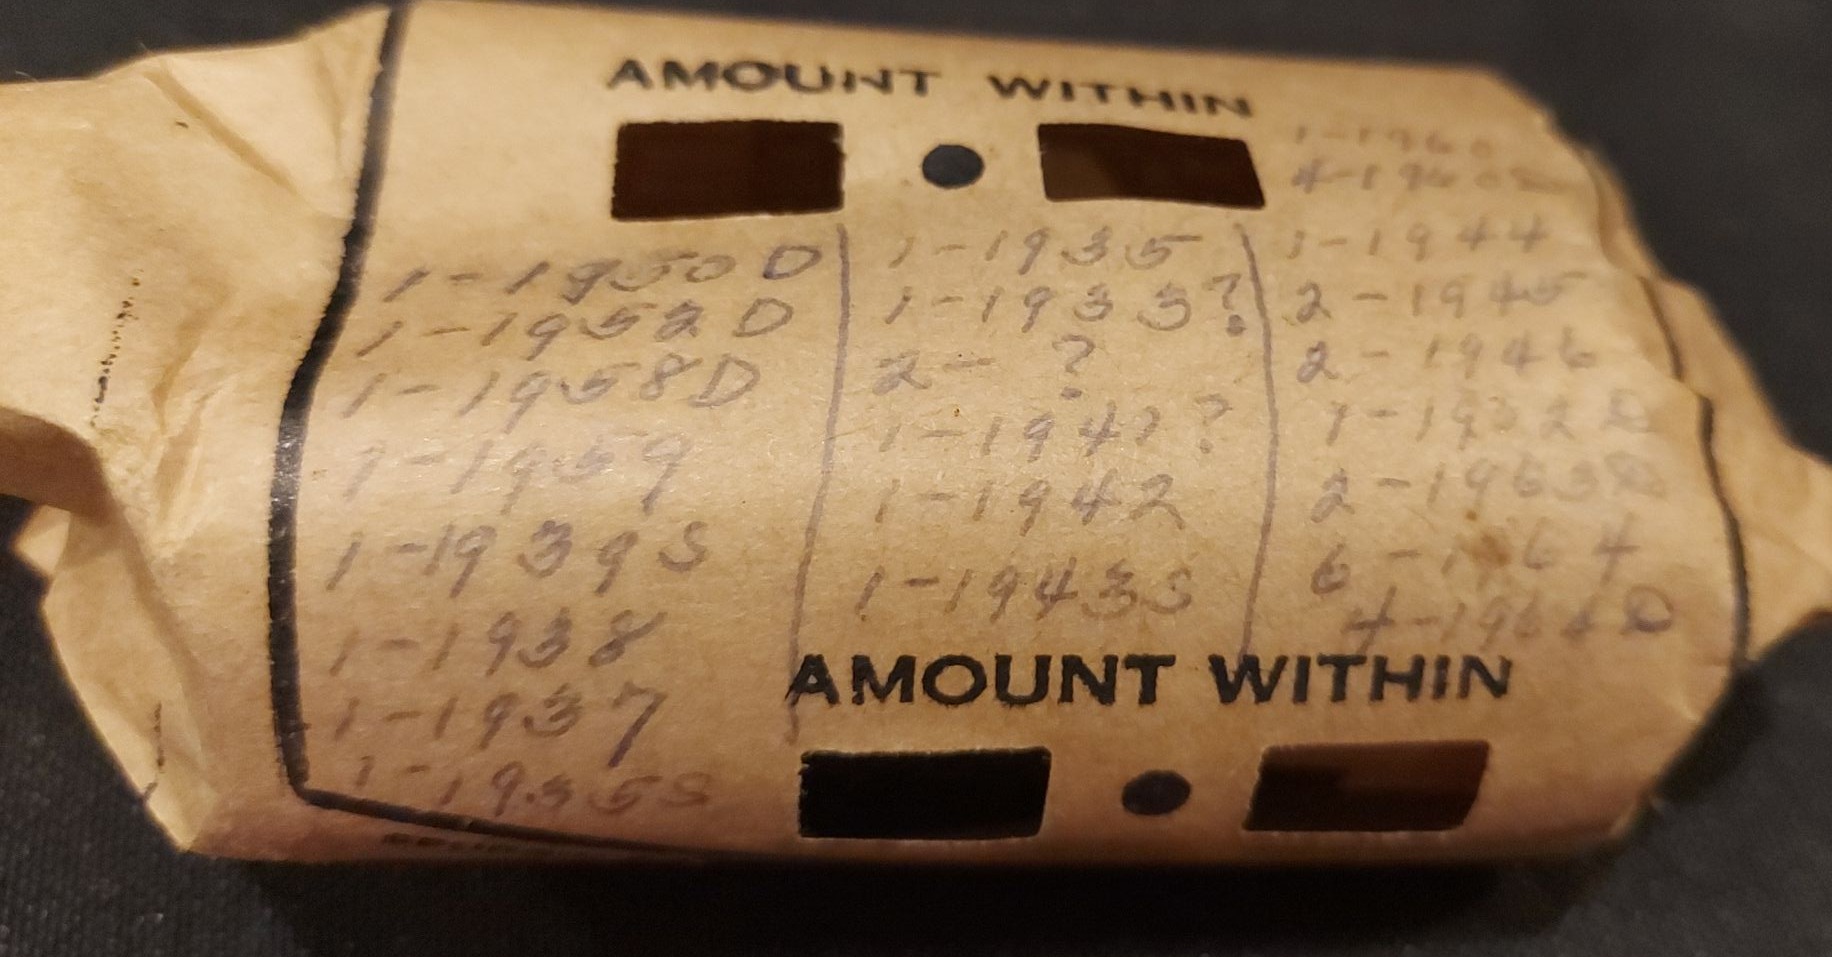 AMOUNT WITHIN
1-1950 D
1-1952 D
1-1958D
1-1959
1-1939S
1-1938
1-1937
1-1935S
1-1935
1-1933?
2- ?
1-194? ?
1-1942
1-1943S
1-1960
4-1960D
1-1944
2-1945
2-1946
2-1963D
6-1964
AMOUNT WITHIN